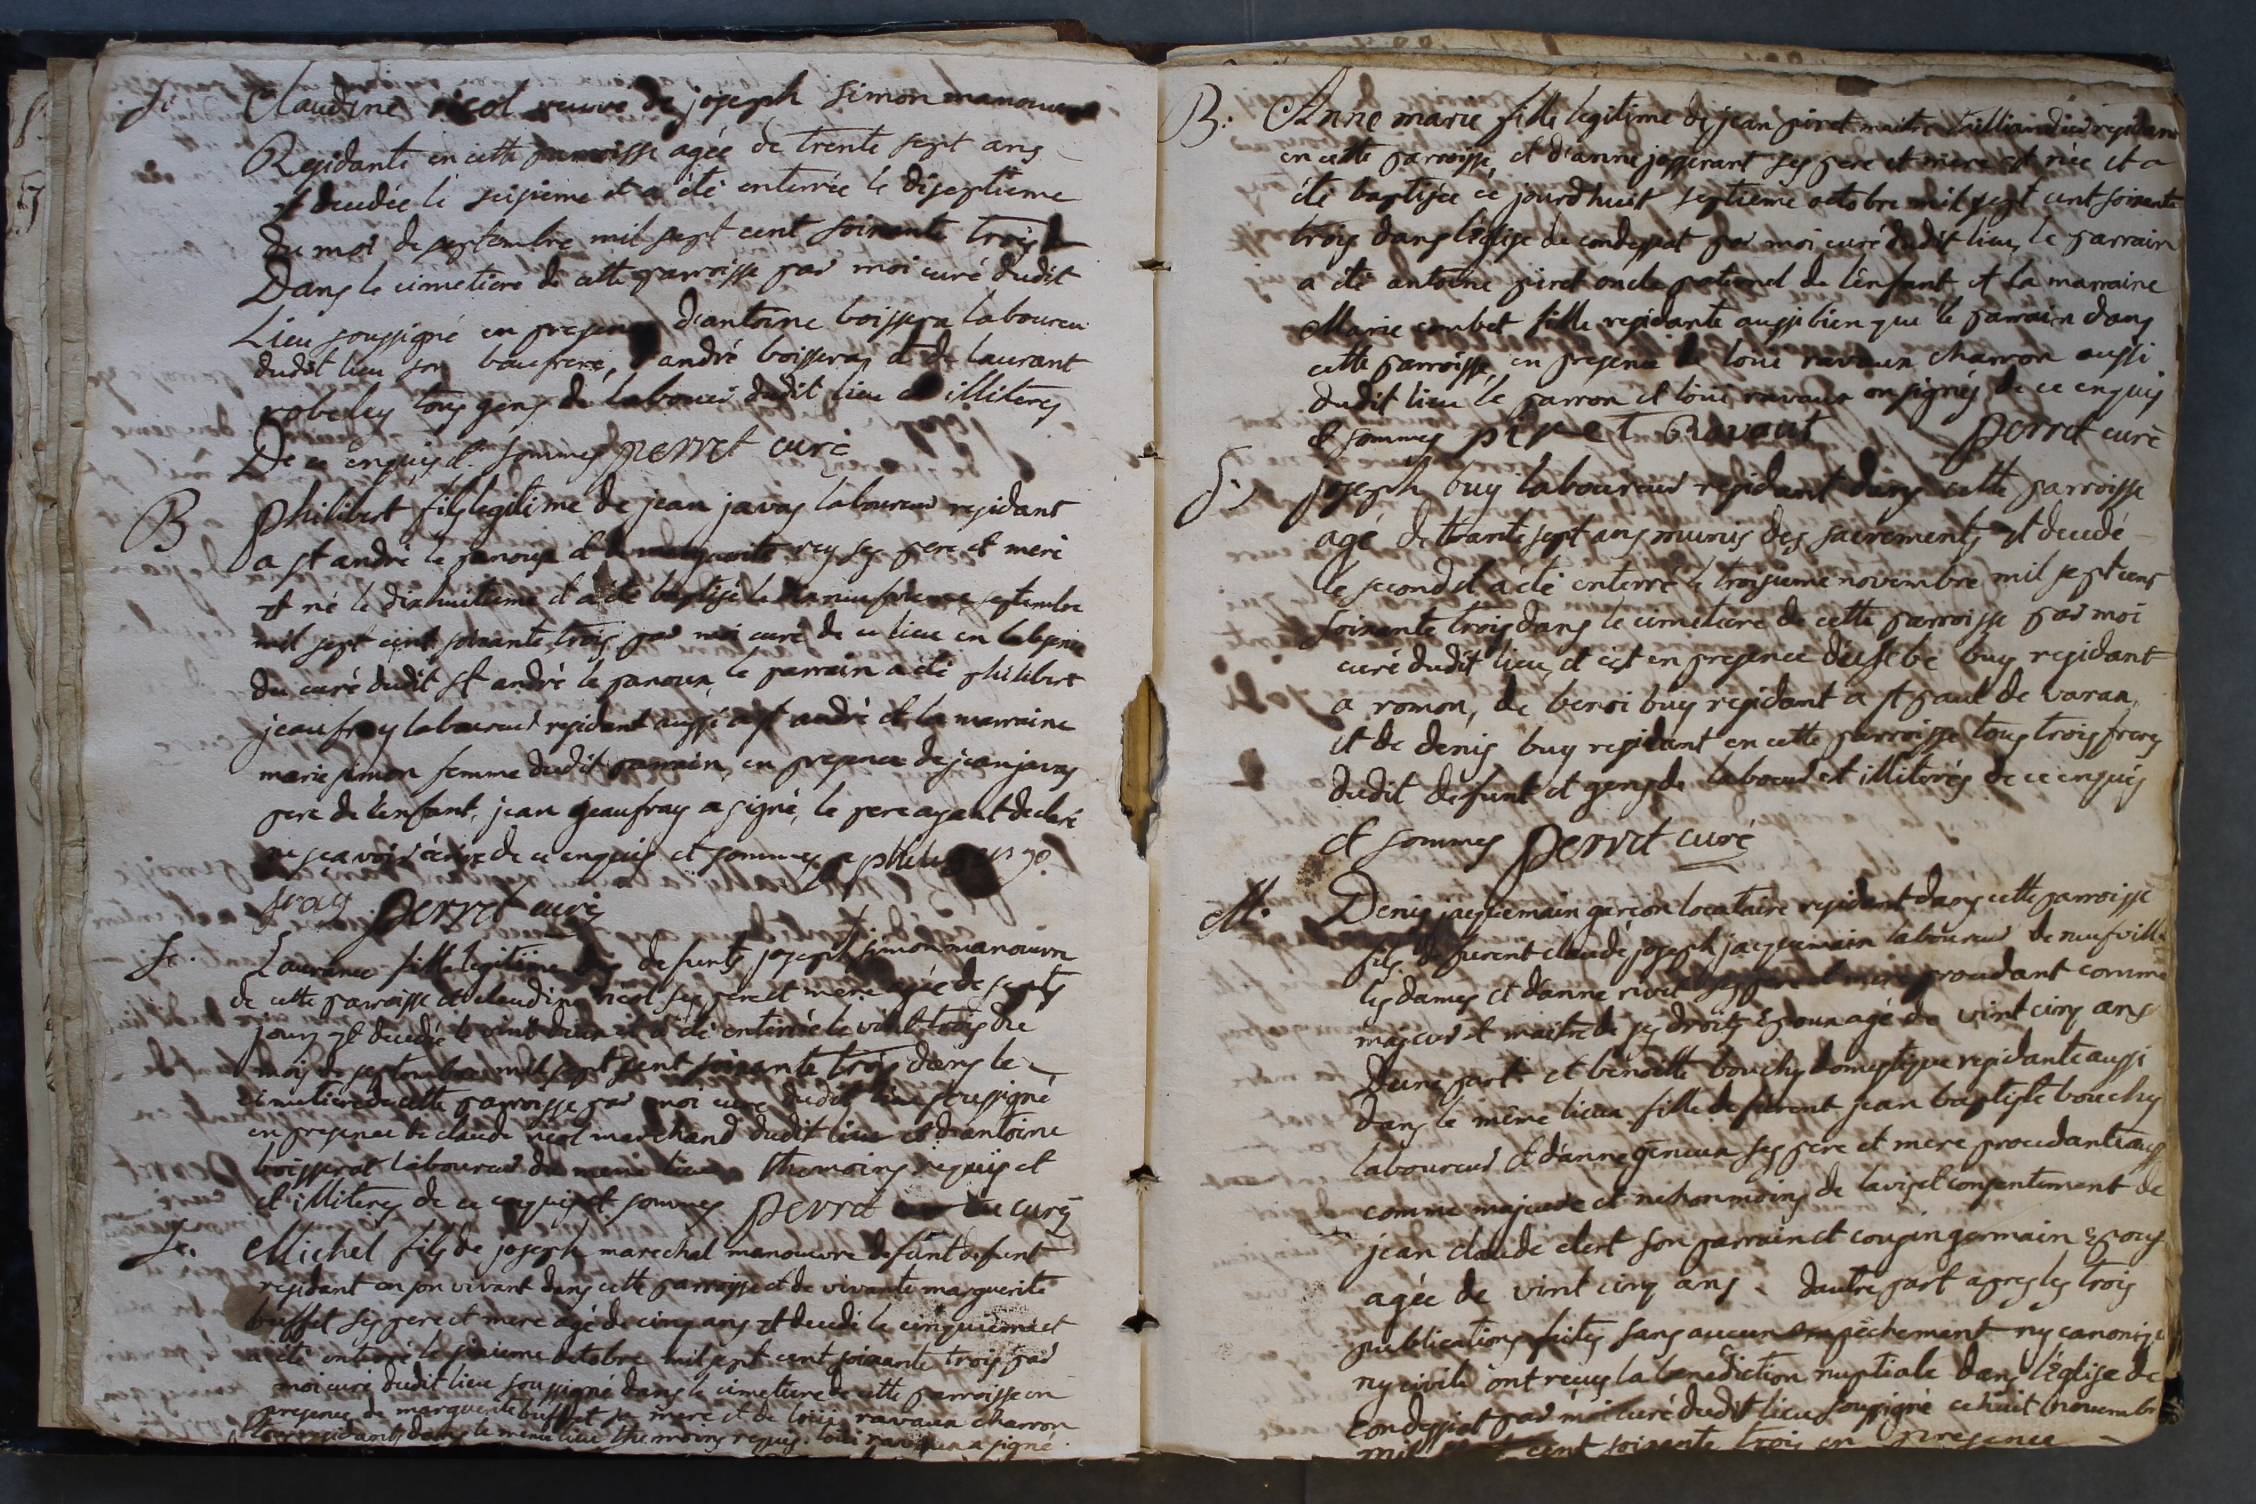 S. Claudine nicol veuve de joseph simon manouvre
Residante en cette parroisse agée de trente sept ans
est decedée le seisieme et a été enterrée le diseptieme
du moi de septembre mil sept cent soixante trois
Dans le cimetiere de cette parroisse par moi curé dudit
Lieu soussigné en presence d'antoine boissera laboureur
dudit lieu son baufrere, andré boisseras et de laurant
robeley tous gens de labour dudit lieu et illiteres
De ce enquis et sommes perret curé
B philibert fils legitime de jean javas laboureur residant
a st andré le panoux et de marguerite rey ses pere et mere
est né le dixhuitieme et a été baptisé le septembre
mil sept cent soixante trois par moi curé de ce lieu en labsence
du curé dudit st andré le panoux, le parrain a été philibert
jeaufray laboureur residant aussi a st andré et la marraine
marie simon femme dudit parrain, en presence de jean javas
pere de l'enfant, jean geaufray a signé, le pere ayant declaré
ne scavoir écrire de ce enquis et sommes
perret curé
S. Laurance fille legitime des defunts joseph simon manouvre
de cette parroisse et claudine nicol ses pere et mere agée de septs
jours est decedée le vint deux et a été enterrée le vint trois du
mois de septembre mil sept cent soixante trois dans le
cimetiere de cette parroisse par moi curé dudit lieu soussigné
en presence de claude nicol marchand dudit lieu et d'antoine
boisserat laboureur du meme lieu themoins requis et
et illiteres de ce enquis et sommes perret curé
S. Michel fils de joseph marechal manouvre defunt defunt
residant en son vivant dans cette parroisse et de vivante marguerite
buffet ses pere et mere agé de cinq ans est decedé le cinquieme et
a été enterré le sixieme octobre mil sept cent soixante trois par
moi curé dudit lieu soussigné dans le cimetiere de cette parroisse en
presence de marguerite buffet sa mere et de loüi ravaux charron
tous residants dans le meme lieu themoins requis. loüi ravaux a signé
B. Anne marie fille legitime de jean piret maitre residant
en cette parroisse, et d'anne josserant ses pere et mere est née et a
été baptisée ce jourdhuit septieme octobre mil sept cent soixante
trois dans l'église de condessiat par moi curé dudit lieu, le parrain
a été antoine piret oncle paternel de l'enfant et la marraine
Marie combet fille residante aussi bien que le parrain dans
cette parroisse, en presence de loui ravaux charron aussi
dudit lieu le parron et loui ravaux on signés de ce enquis
et sommes piret Ravaut perret curé
S. joseph buy laboureur residant dans cette parroisse
agé de trante sept ans munis des sacrements est decedé
le second et a été enterré le troisieme novembre mil sept cens
soixante trois dans le cimetiere de cette parroisse par moi
curé dudit lieu, et cest en presence buy residant
a romon, de benoi buy residant a st paul de varax,
et de denis buy residant en cette parroisse tous trois freres
dudit defunt et gens de labour et illiterés de ce enquis
et sommes perret curé
M. Denis jacquemain garcon locataire residant dans cette parroisse
fils de furent claude joseph jacquemain laboureur de neufville
les dames et d'anne rivet ses pere et mere procedant comme
majeur et maitre de ses droits Epoux agé de vint cinq ans
dune part. et benoitte bouchy domestique residante aussi
Dans le même lieux fille de furent jean baptiste bouchy
laboureur et d'anne geneux ses pere et mere procedante aussi
comme majeure et nehonmoins de lavis et consentement de
jean claude clert son parrain et cousin germain Epous
agée de vint cinq ans. dautre part apres les trois
publications faites sans aucun empéchement ny canonique
ny civile ont reçus la benediction nuptiale dans l'église de
condessiat par moi curé dudit lieu soussigné ce huit novembre
mil sept cent soixante trois en presence